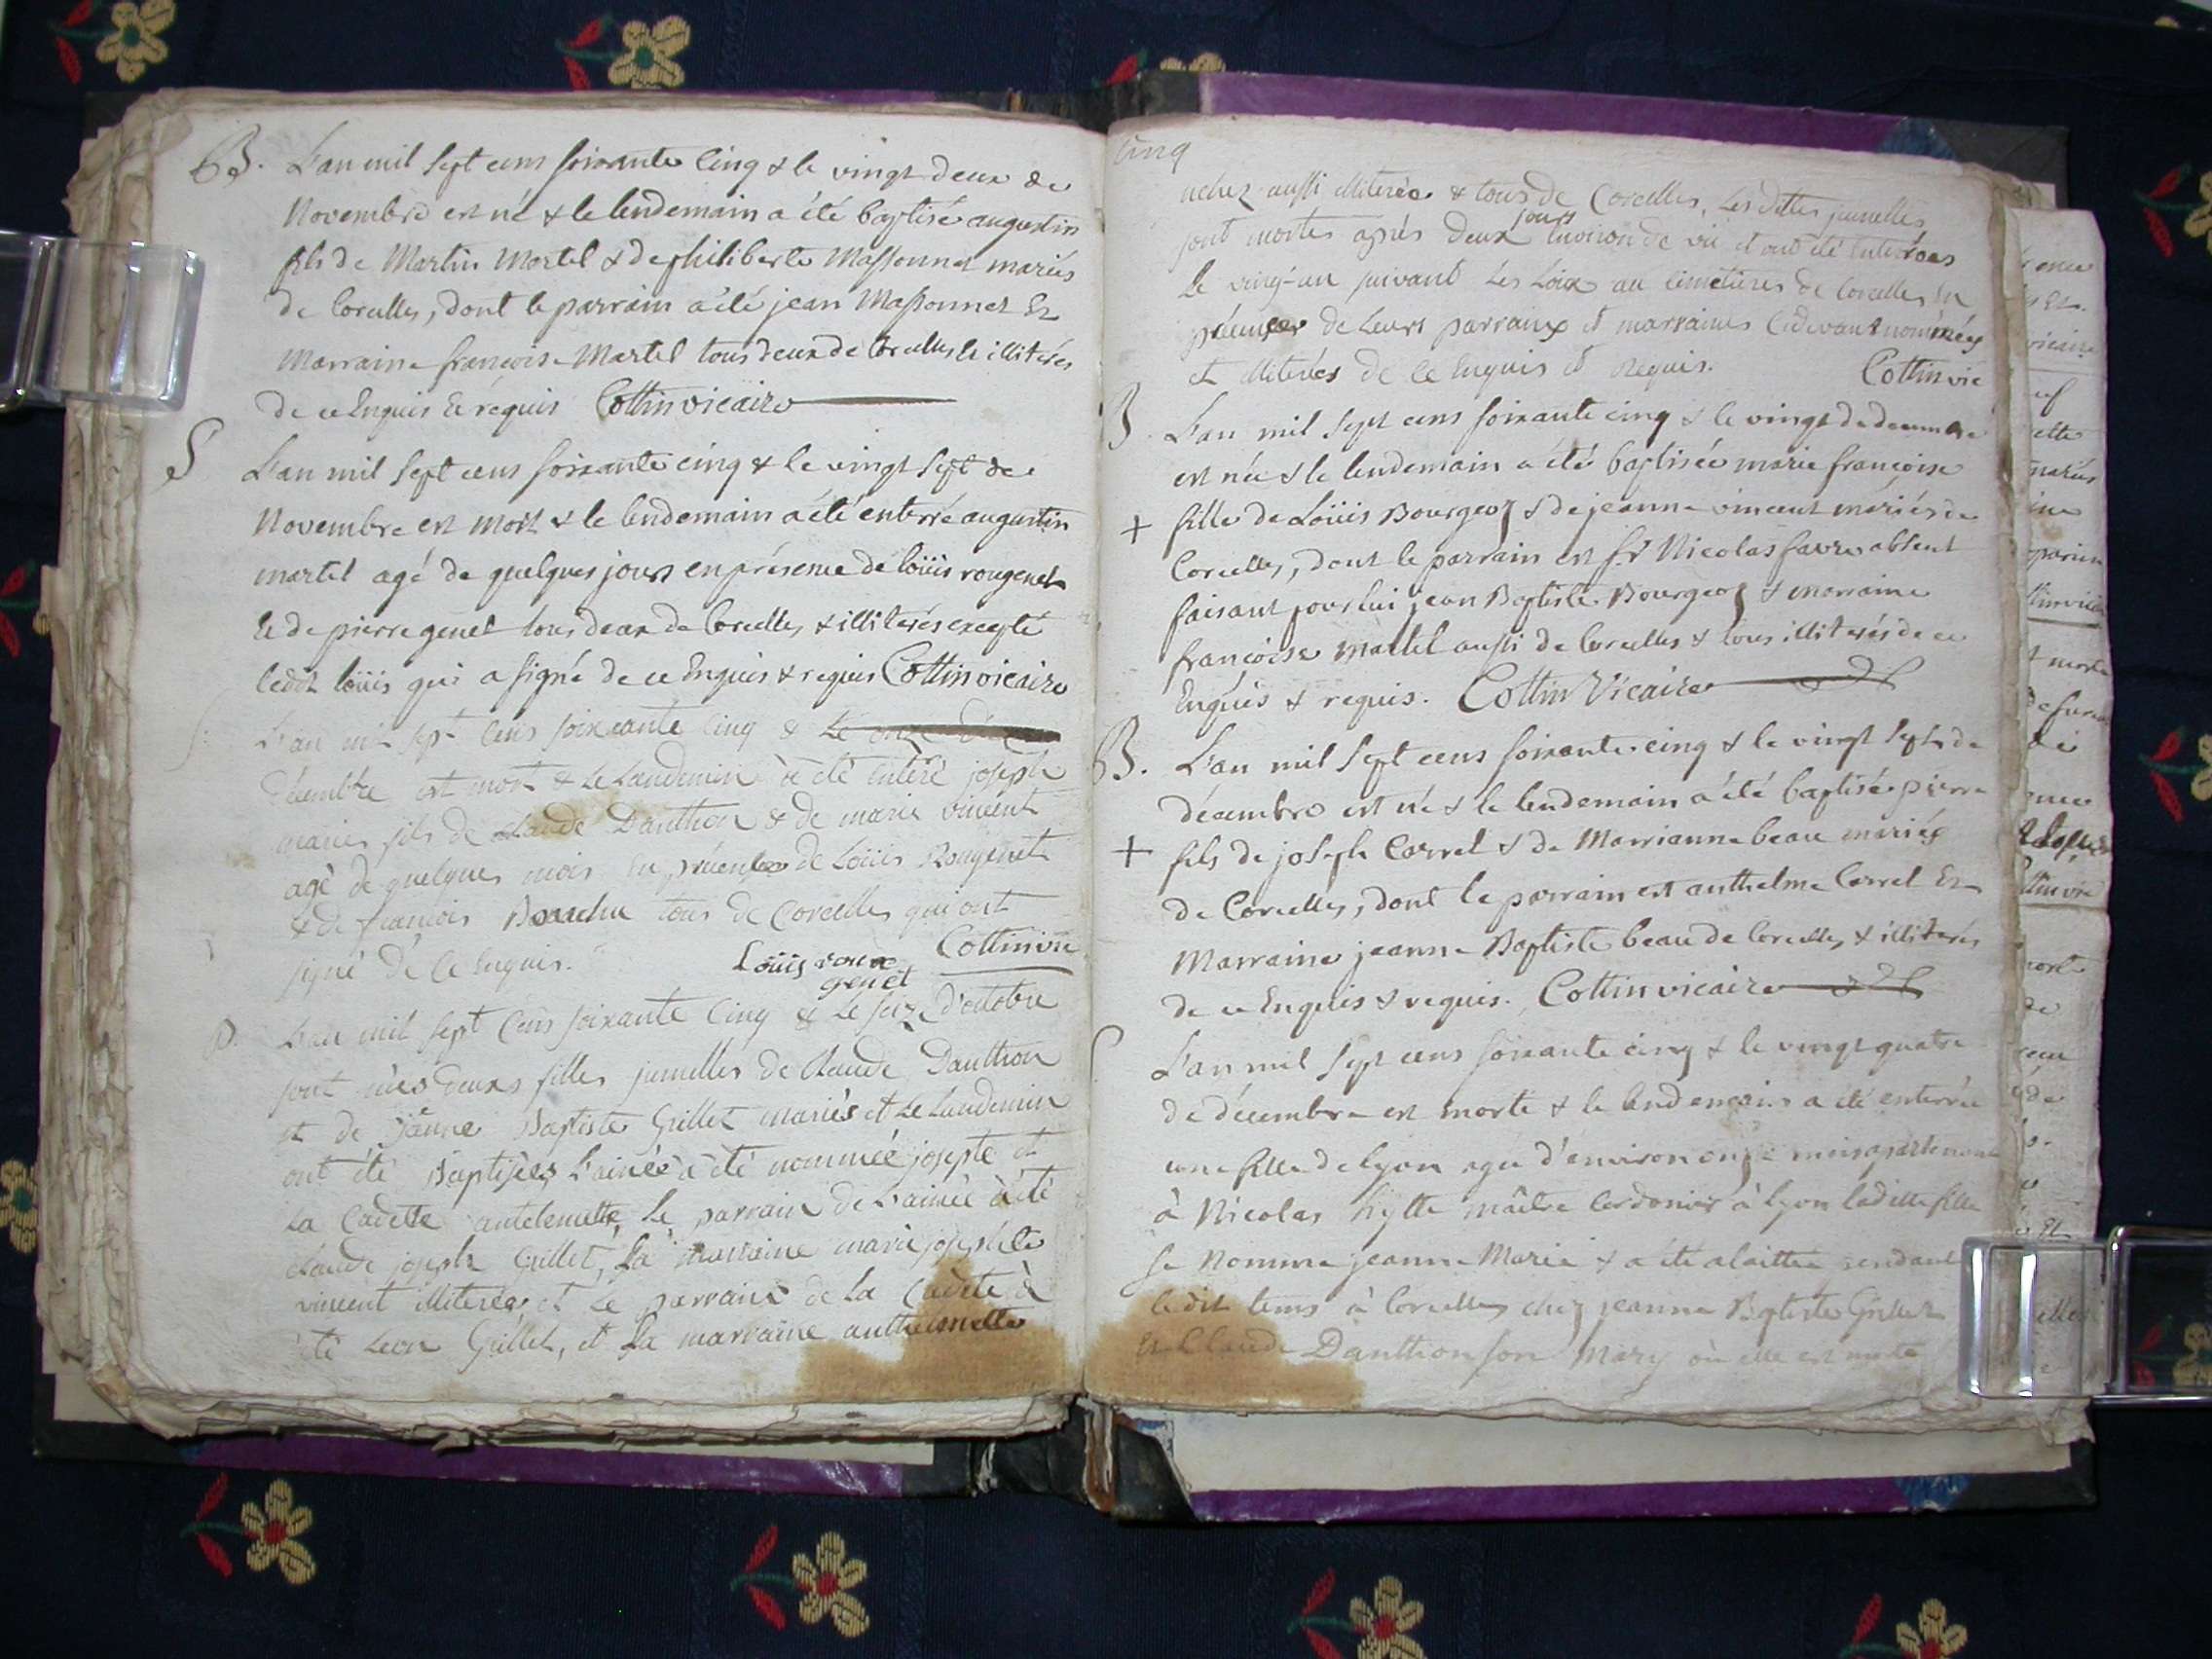 B. L'an mil sept cens soixante cinq & le vingt deux de
Novembre est né & le lendemain a été baptisé augustin
fils de Martin Martel & de philiberte Massonnet mariés
de Corcelles, dont le parrain a été jean Massonnet Et
Marraine françoise Martel tous deux de Corcelles & illiterés
de ce Enquis Et requis Cottin vicaire
S L'an mil sept cens soixante cinq & le vingt sept de
Novembre est mort & le lendemain a été enterré augustin
martel agé de quelques jours en présence de loüis rougenet
Et de pierre genet tous deux de Corcelles & illiterés excepté
ledit loüis qui a signé de ce Enquis & requis Cottin vicaire
S. L'an mil sept cens soixante cinq & le onze
décembre est mort & le landemin a été enteré joseph
marie fils de claude Danthon & de marie vincent
agé de quelques mois En présence de Loüis Rougenet
& de francois tous de Corcelles qui ont
signé de ce Enquis. Cottin vic
Loüis rou
genet
B. L'an mil sept cens soixante cinq & le seize d'octobre
sont nées deux filles jumelles de Claude Danthon
et de jeanne Baptiste Grillet mariés et le landemin
ont été Baptisées, L'ainée a été nommée josepte et
La Cadette antelemette, Le parrain de L'ainée a été
claude joseph Grillet, La marraine marie josephte
vincent illiterés, et Le parrain de La Cadete a
été Leon Grillet, et La marraine anthelmette
cinq
aussi illiterée & tous de Corcelles, Les dittes jumelles
sont mortes après deux jours Environ de vie et ont été Enterrées
Le vingt-un suivant Les Loix au cimetière de Corcelles En
présence de Leurs parrains et marraines Cidevant nommés
et illiterés de ce Enquis et Requis. Cottin vic
B. L'an mil sept cens soixante cinq & le vingt de decembre
est née & le lendemain a été baptisée marie françoise
+ fille de Loüis Bourgeoz & de jeanne vincent mariés de
Corcelles, dont le parrain est sr Nicolas favre absent
faisant pour lui jean Baptiste Bourgeoz & marraine
françoise martel aussi de Corcelles & tous illiterés de ce
Enquis & requis. Cottin Vicaire
B. L'an mil sept cens soixante cinq & le vingt sept de
décembre est né & le lendemain a été baptisé pierre
+ fils de joseph Carrel & de Marrianne beau mariés
de Corcelles, dont le parrain est anthelme Carrel Et
Marraine jeanne Baptiste beau de Corcelles & illiterés
de ce Enquis & requis. Cottin vicaire
S L'an mil sept cens soixante cinq & le vingt quatre
de décembre est morte & le lendemain a été enterrée
une fille de lyon agée d'environ onze mois apartenant
à Nicolas maître Cordonier à lyon laditte fille
se Nomme jeanne Marie & a été alaittée pendant
ledit tems à Corcelles chez jeanne Baptiste Grillet
Et Claude Danthon son Mary où elle est morte